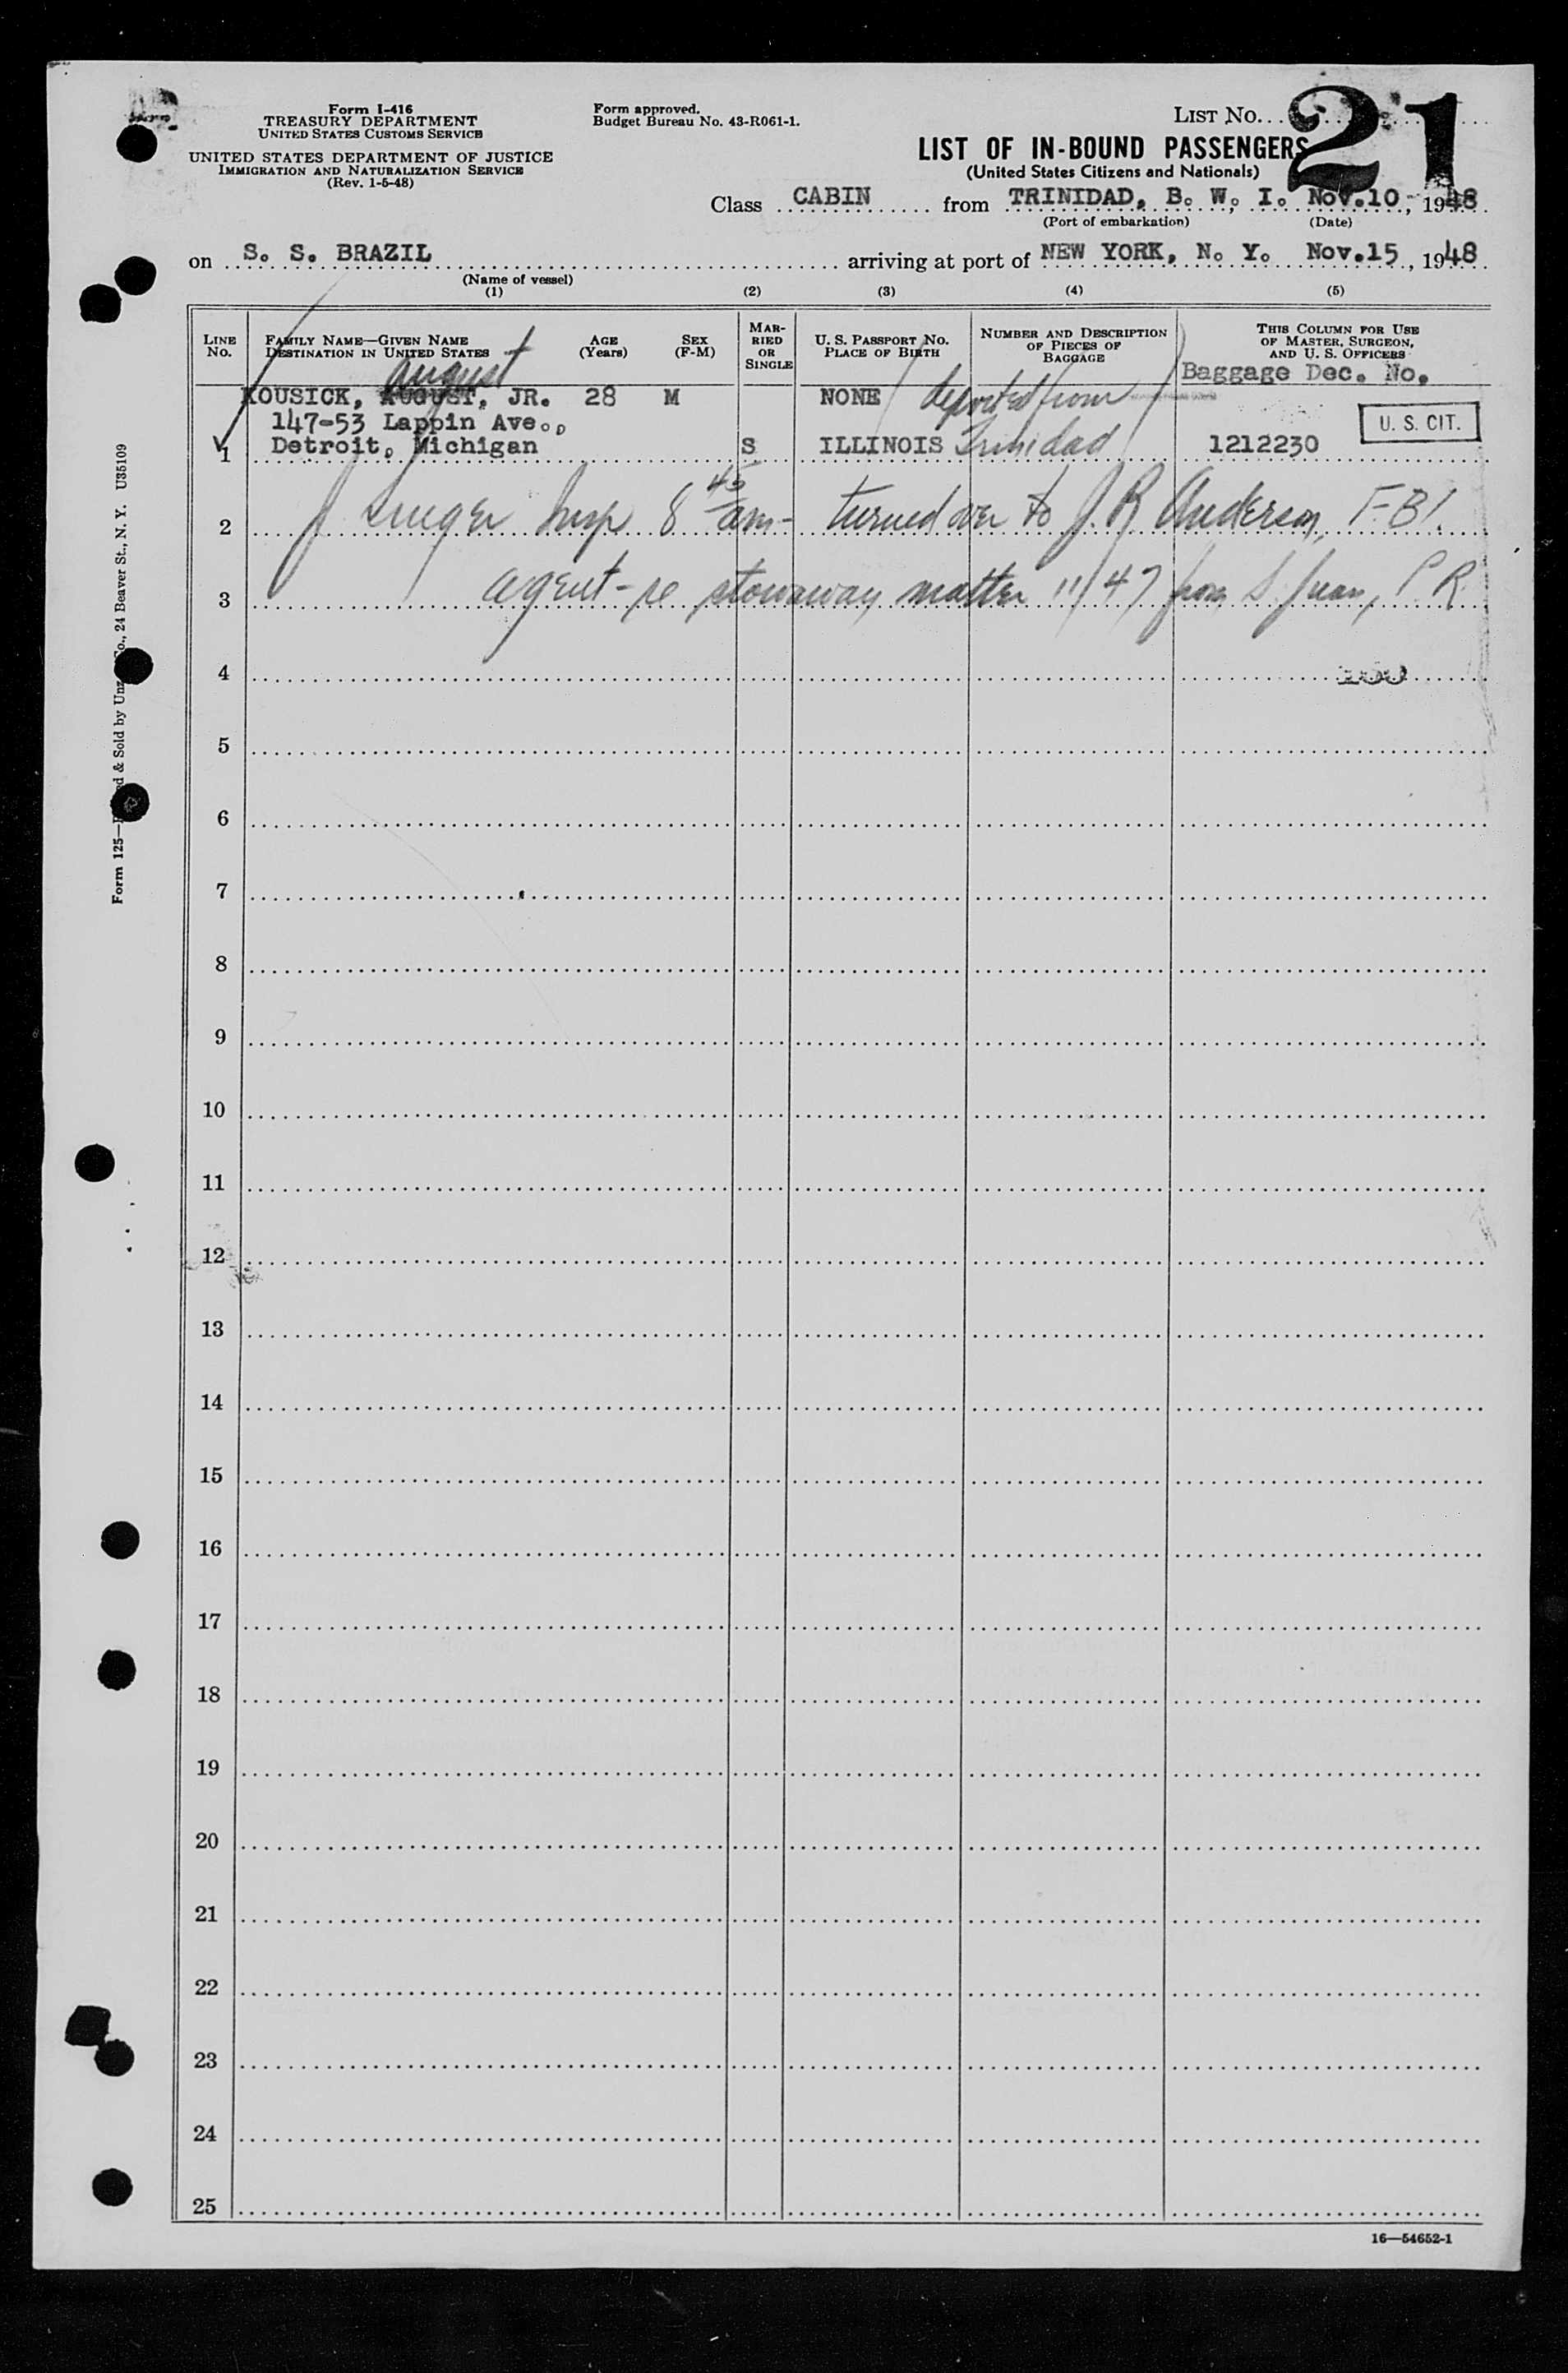 Form I-416
TREASURY DEPARTMENT
UNITED STATES CUSTOMS SERVICE
UNITED STATES DEPARTMENT OF JUSTICE
IMMIGRATION AND NATURALIZATION SERVICE
(Rev. 1-5-48)
Form approved.
Budget Bureau No. 43-R061-1.
LIST No. 21
LIST OF IN-BOUND PASSENGERS
(United States Citizens and Nationals)
Class CABIN from TRINIDAD, B. W. I. Nov.10, 1948
(Port of embarkation) (Date)
on S. S. BRAZIL arriving at port of NEW YORK, N. Y. Nov.15, 1948
(Name of vessel)
(1) (2) (3) (4) (5)
LINE No.
FAMILY NAME—GIVEN NAME
DESTINATION IN UNITED STATES
AGE (Years)
SEX (F-M)
MARRIED OR SINGLE
U. S. PASSPORT NO.
PLACE OF BIRTH
NUMBER AND DESCRIPTION OF PIECES OF BAGGAGE
THIS COLUMN FOR USE OF MASTER, SURGEON, AND U. S. OFFICERS
Baggage Dec. No.
August
KOUSICK, AUGUST, JR. 28 M NONE deported from
147-53 Lappin Ave., U. S. CIT.
1 Detroit, Michigan S ILLINOIS Trinidad 1212230
2 J Singer Insp 8 45 am - turned over to J. R Anderson, FBI.
3 agent - re stowaway matter 11/47 from S. Juan, P R
4
5
6
7
8
9
10
11
12
13
14
15
16
17
18
19
20
21
22
23
24
25
16—54652-1
Form 125— & Sold by Co., 24 Beaver St., N. Y. U35109